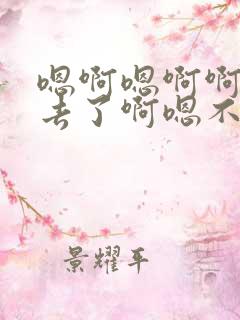 嗯啊嗯啊啊
去了啊嗯不
景耀平